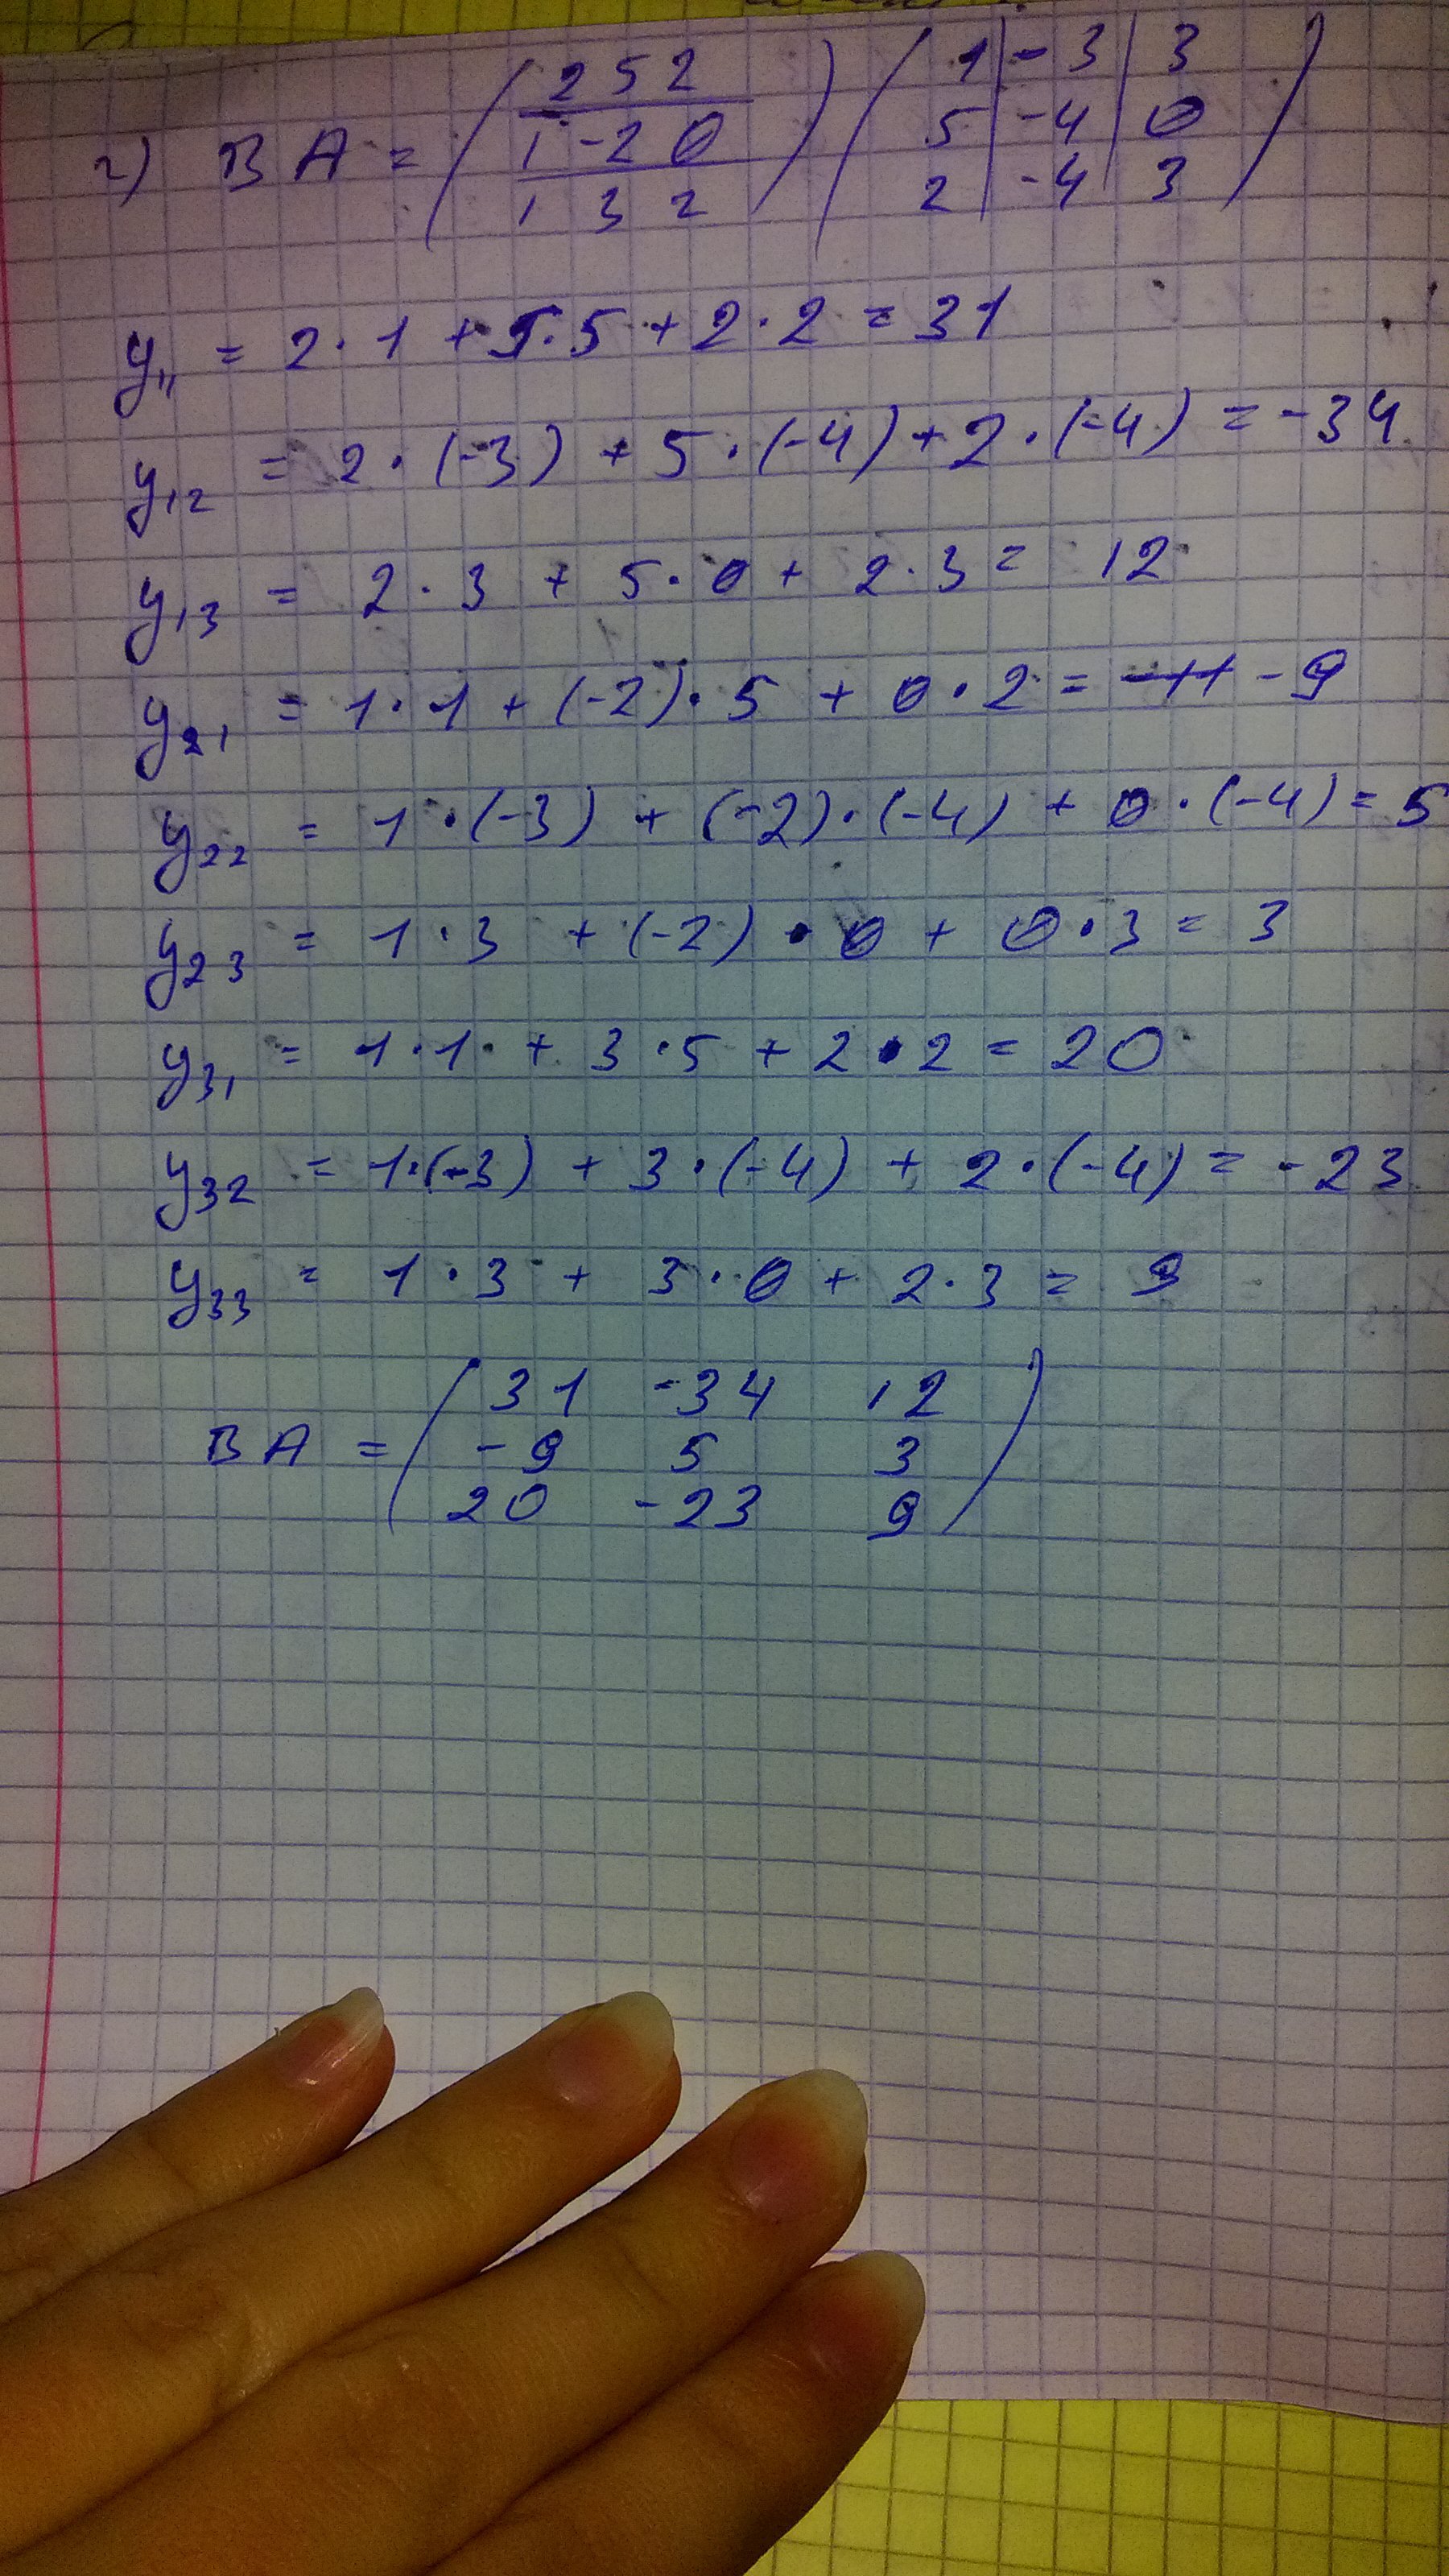 2 5 2 1 -3 3
г) B A = 1 -2 0 5 -4 0
1 3 2 2 -4 3
y11 = 2·1 + 5·5 + 2·2 = 31
y12 = 2·(-3) + 5·(-4) + 2·(-4) = -34
y13 = 2·3 + 5·0 + 2·3 = 12
y21 = 1·1 + (-2)·5 + 0·2 = -11 -9
y22 = 1·(-3) + (-2)·(-4) + 0·(-4) = 5
y23 = 1·3 + (-2)·0 + 0·3 = 3
y31 = 1·1 + 3·5 + 2·2 = 20
y32 = 1·(-3) + 3·(-4) + 2·(-4) = -23
y33 = 1·3 + 3·0 + 2·3 = 9
31 -34 12
B A = -9 5 3
20 -23 9